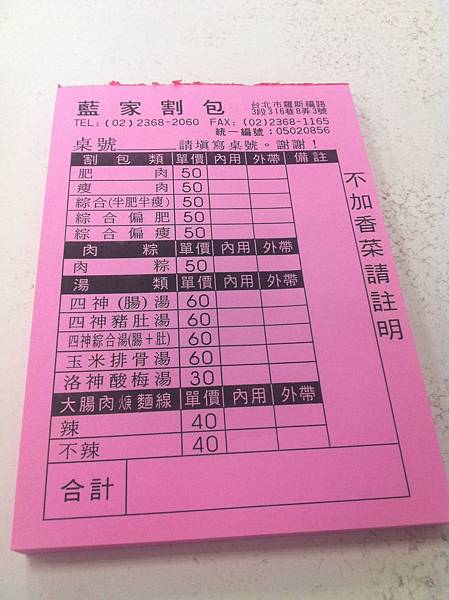 藍家割包
台北市羅斯福路
3段316巷8弄3號
TEL:(02)2368-2060 FAX:(02)2368-1165
統一編號:05020856
桌號 請填寫桌號。謝謝!
割包類 單價 內用 外帶 備註
肥肉 50
瘦肉 50
綜合(半肥半瘦) 50
綜合偏肥 50
綜合偏瘦 50
肉粽 單價 內用 外帶
肉粽 50
湯類 單價 內用 外帶
四神(腸)湯 60
四神豬肚湯 60
四神綜合湯(腸+肚) 60
玉米排骨湯 60
洛神酸梅湯 30
大腸肉焿麵線 單價 內用 外帶
辣 40
不辣 40
合計
不加香菜請註明